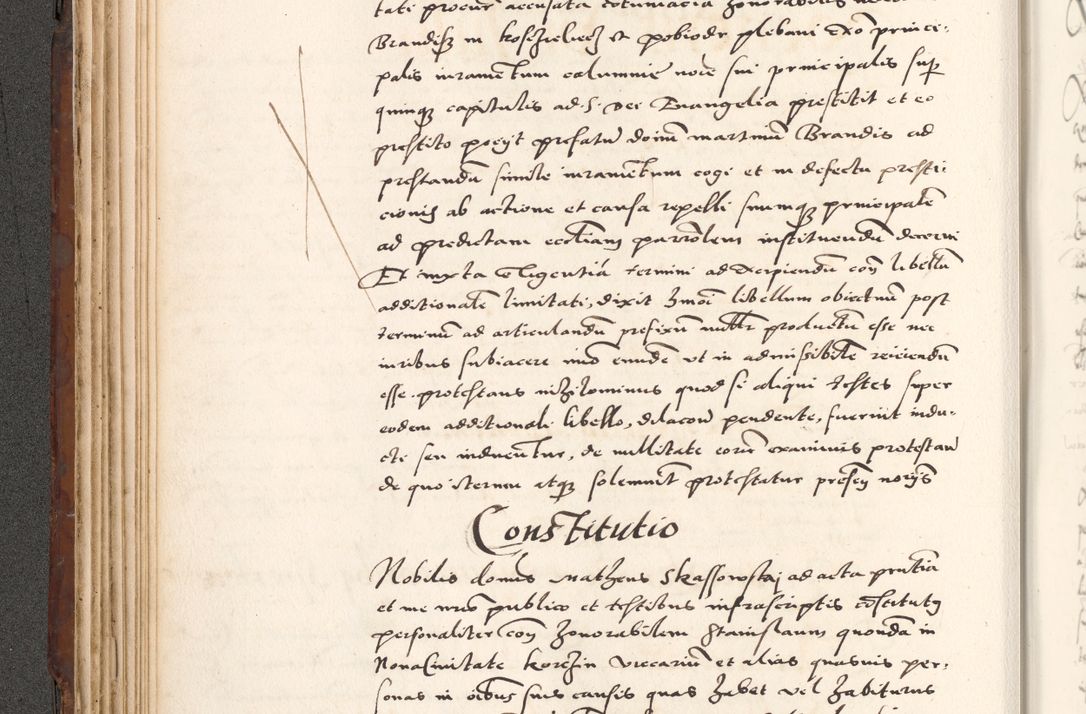 tati procur accusata cotumacia honorabilis
Brandisz in Koszielecz et pobiodr plebani Exo prince-
palis iuramentum calumnie noīe sui principalis sup
quinqz capitulis ad S. Dei Euangelia prestitit et eo
prestito pecyt prefatū domīn martinū Brandis ad
prestandū simile iuramentum cogi et in defectu presti-
cionis ab actione et causa repelli suumqz principalē
ad predictam eccliam parrolem instituendū decerni
Et iuxta exigentiā termini ad excipiendū con libellū
additionalē limitati, dixit hmōi libellum obiectum post
terminū ad articulandū prefixum nullr productū esse nec
iuribus subiacere imo eundē ut in admissibilē reiiciendū
esse. protestans nihilominus quod si aliqui testes super
eodem additionali libello, dilacōn pendente, fuerint indu-
cti seu inducentur, de nullitate eorū examinis protestan
de quo iterum atqz solemnit protestatur presen norijs
Constitutio
Nobilis domūs Matheus Skassowskj ad acta prntia
et me nrio publico et testibus infrascriptis constitutq
personaliter con honorabilem Stanislaum quondā in
Nona Ciuitate Korczin viccariū et alias quasuis per-
sonas in oibus suis causis quas habet vel habiturus